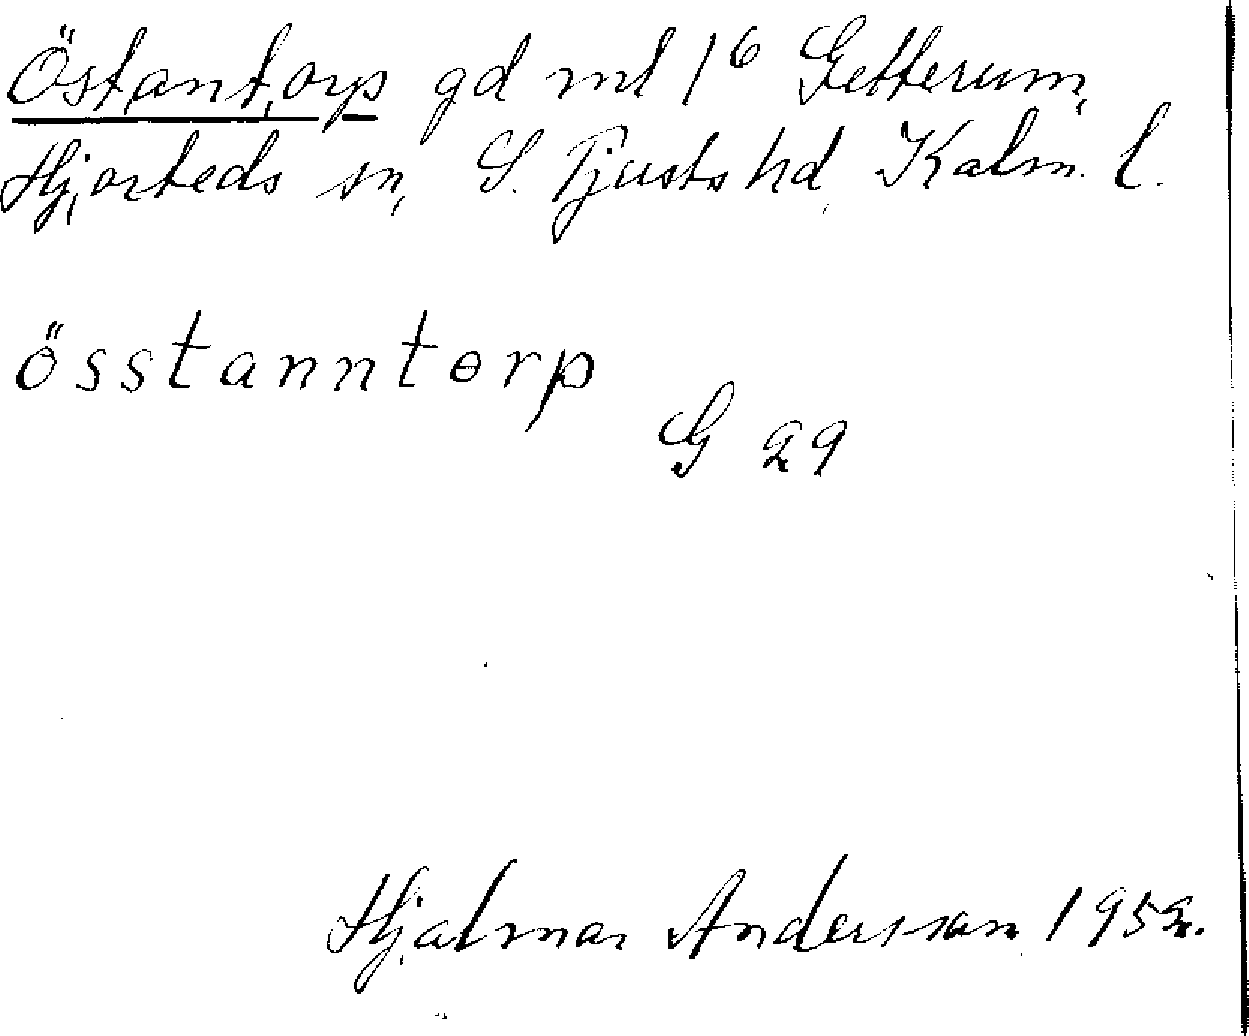 Östantorp gd ml 1⁶ Getterum,
Hjorteds sn, S. Tjusts hd, Kalm. l.
össtanntorp
G 29
Hjalmar Andersson 1952.